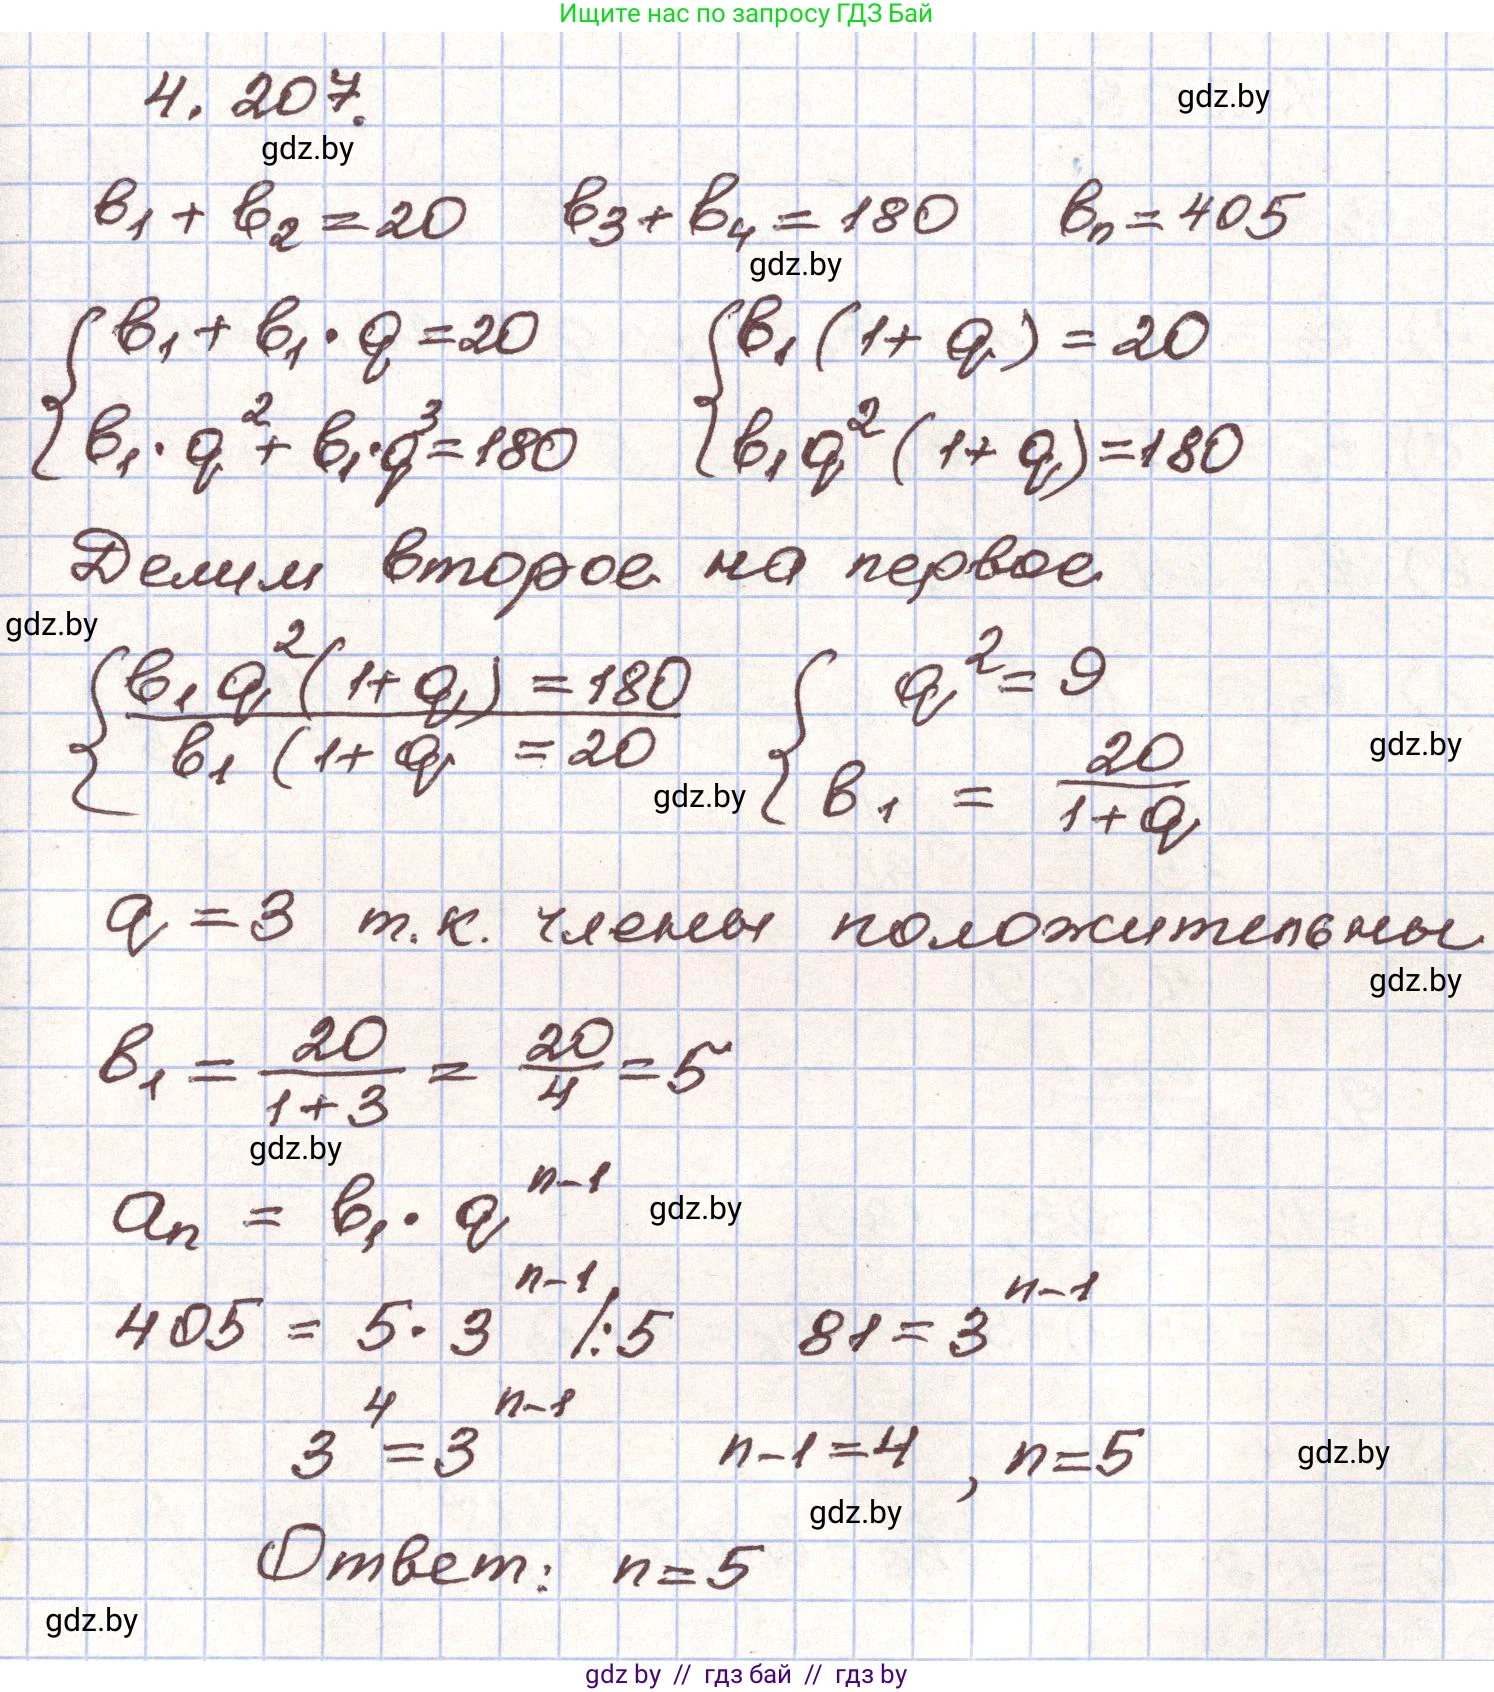 Ищите нас по запросу ГДЗ Бай
4. 207.
gdz.by
gdz.by
в₁ + в₂ = 20 в₃ + в₄ = 180 вₙ = 405
gdz.by
{ в₁ + в₁ · q = 20 { в₁ (1 + q) = 20
в₁ · q² + в₁ · q³ = 180 в₁ q² (1 + q) = 180
Делим второе на первое
gdz.by
{ в₁ q² (1 + q) = 180 { q² = 9
в₁ (1 + q = 20 в₁ = 20 / 1 + q
gdz.by
gdz.by
q = 3 т.к. члены положительны
gdz.by
в₁ = 20 / 1 + 3 = 20 / 4 = 5
gdz.by
aₙ = в₁ · q^(n-1)
gdz.by
405 = 5 · 3^(n-1) /:5 81 = 3^(n-1)
3⁴ = 3^(n-1) n - 1 = 4 , n = 5
gdz.by
gdz.by
Ответ: n = 5
gdz.by
gdz by // гдз бай // гдз by